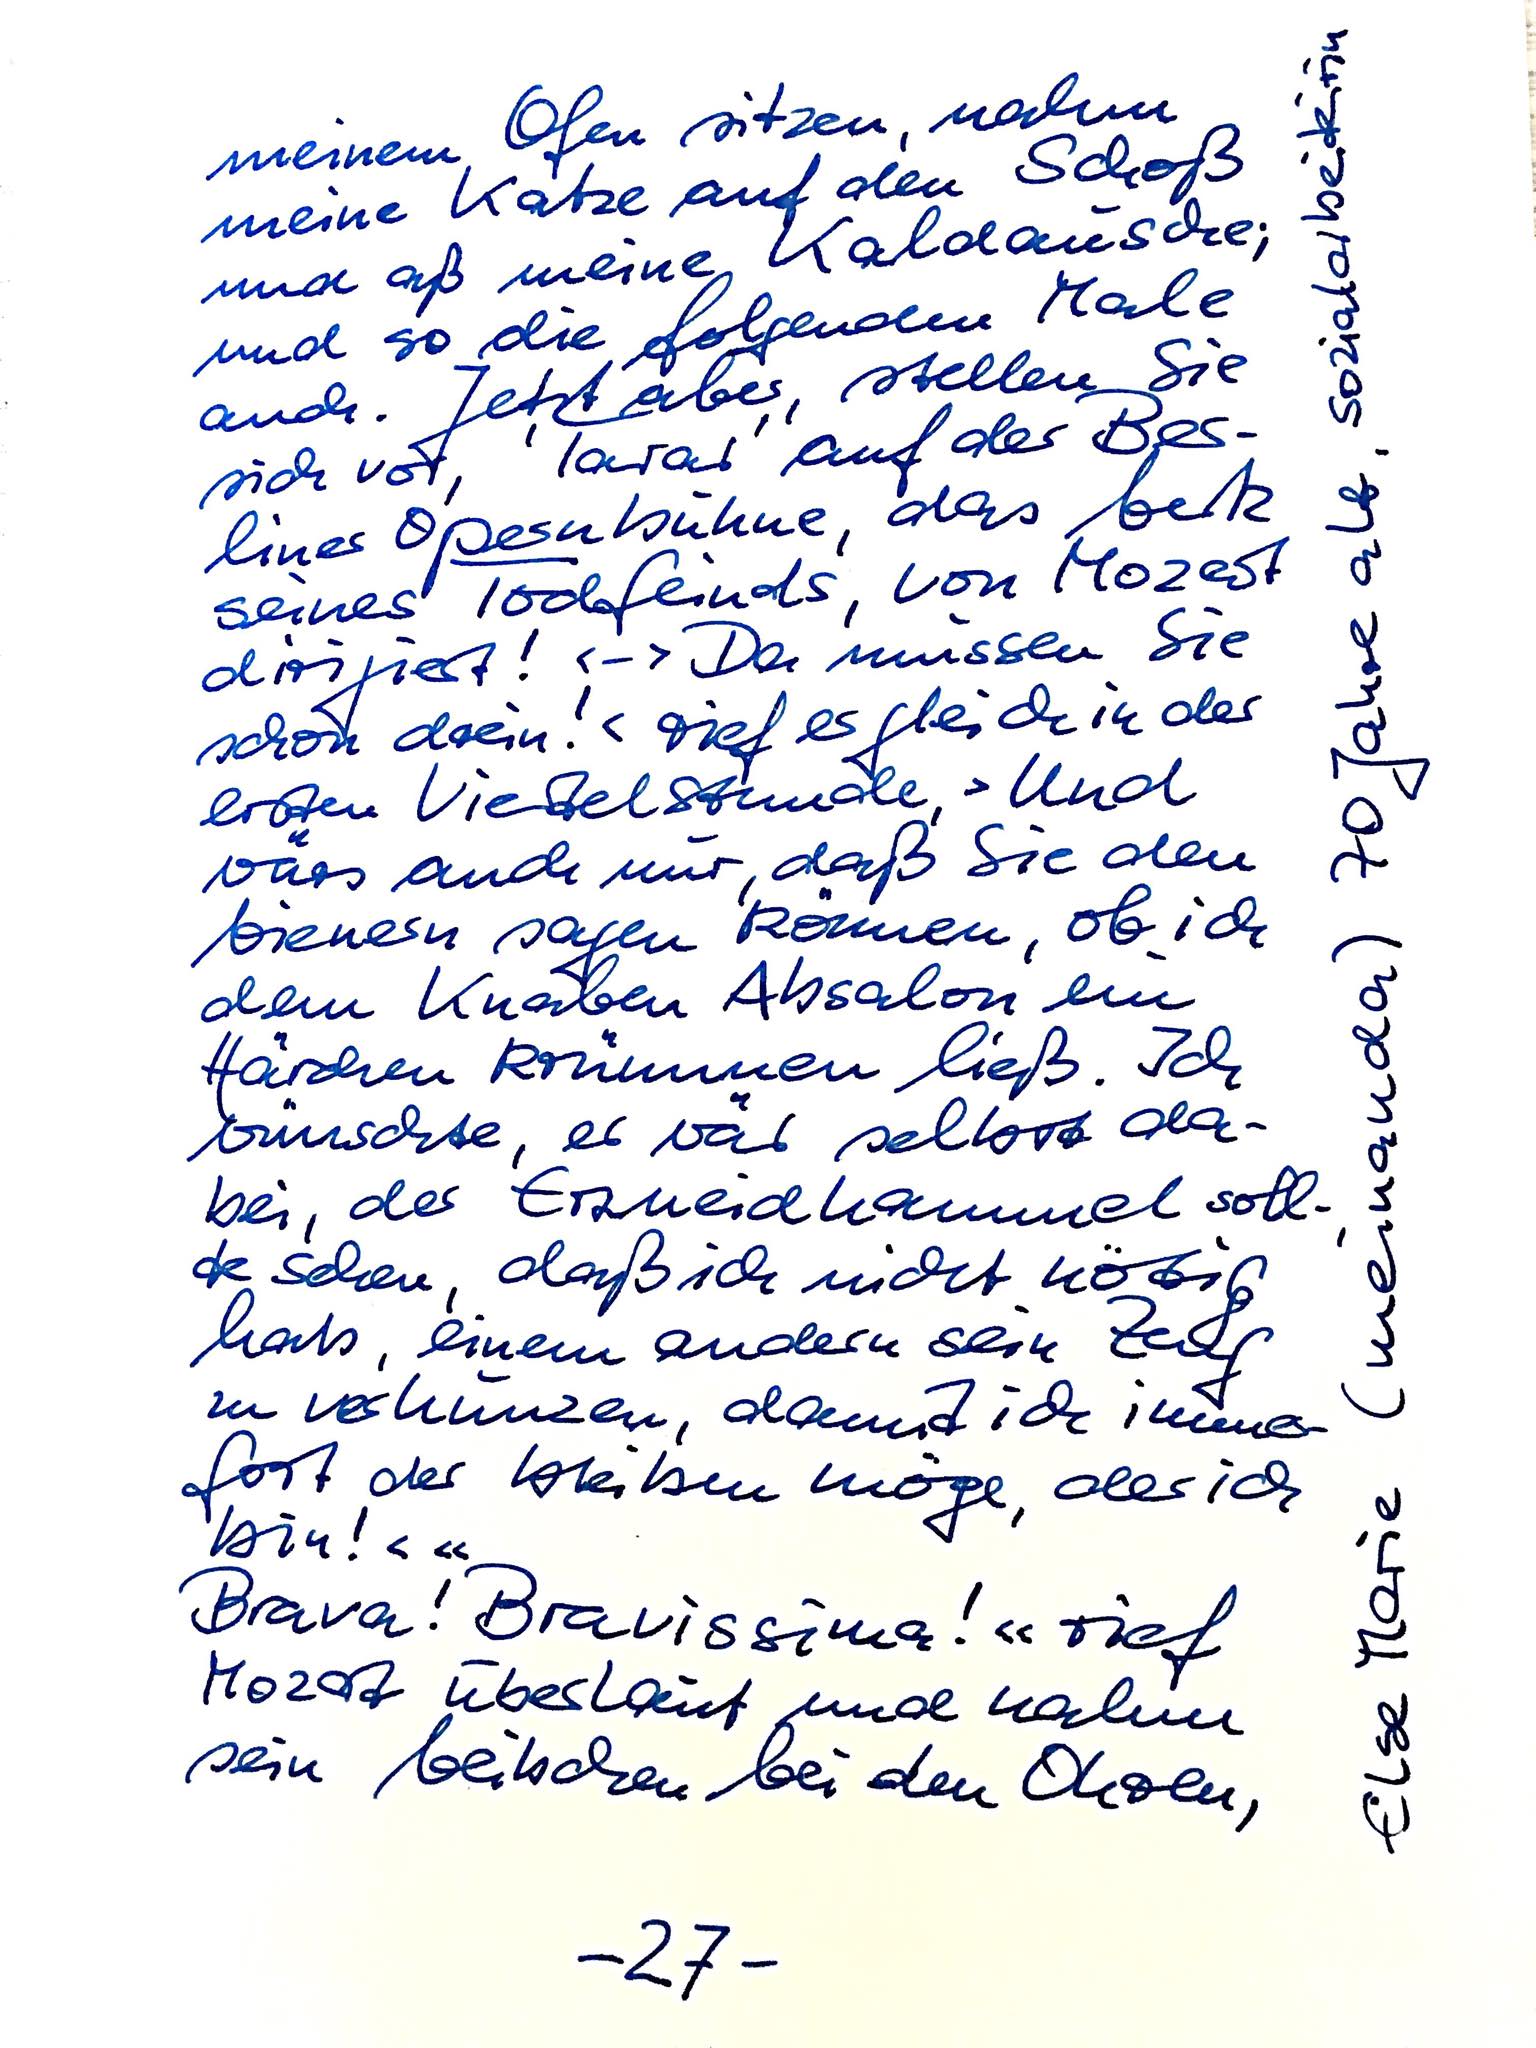 meinem Ofen sitzen, nahm
meine Katze auf den Schoß
und aß meine Kaldausche;
und so die folgenden Male
auch. Jetzt aber, stellen Sie
sich vor, 'Tarar' auf der Ber-
liner Opernbühne, das Werk
seines Todfeinds, von Mozart
dirigiert! ‹–› Da müssen Sie
schon drein!‹ rief er gleich in der
ersten Viertelstunde, ›Und
wärs auch nur, daß Sie den
Wienern sagen können, ob ich
dem Knaben Absalon ein
Härchen krümmen ließ. Ich
wünschte, er wär selbst da-
bei, der Erzneidhammel soll-
te sehen, daß ich nicht nötig
hab, einem andern sein Zeug
zu verhunzen, damit ich immer-
fort der bleiben möge, der ich
bin!‹ «
Brava! Bravissima!« rief
Mozart überlaut und nahm
sein Weibchen bei den Ohren,
-27-
Else Marie (meinanda) 70 Jahre alt, sozialarbeiterin